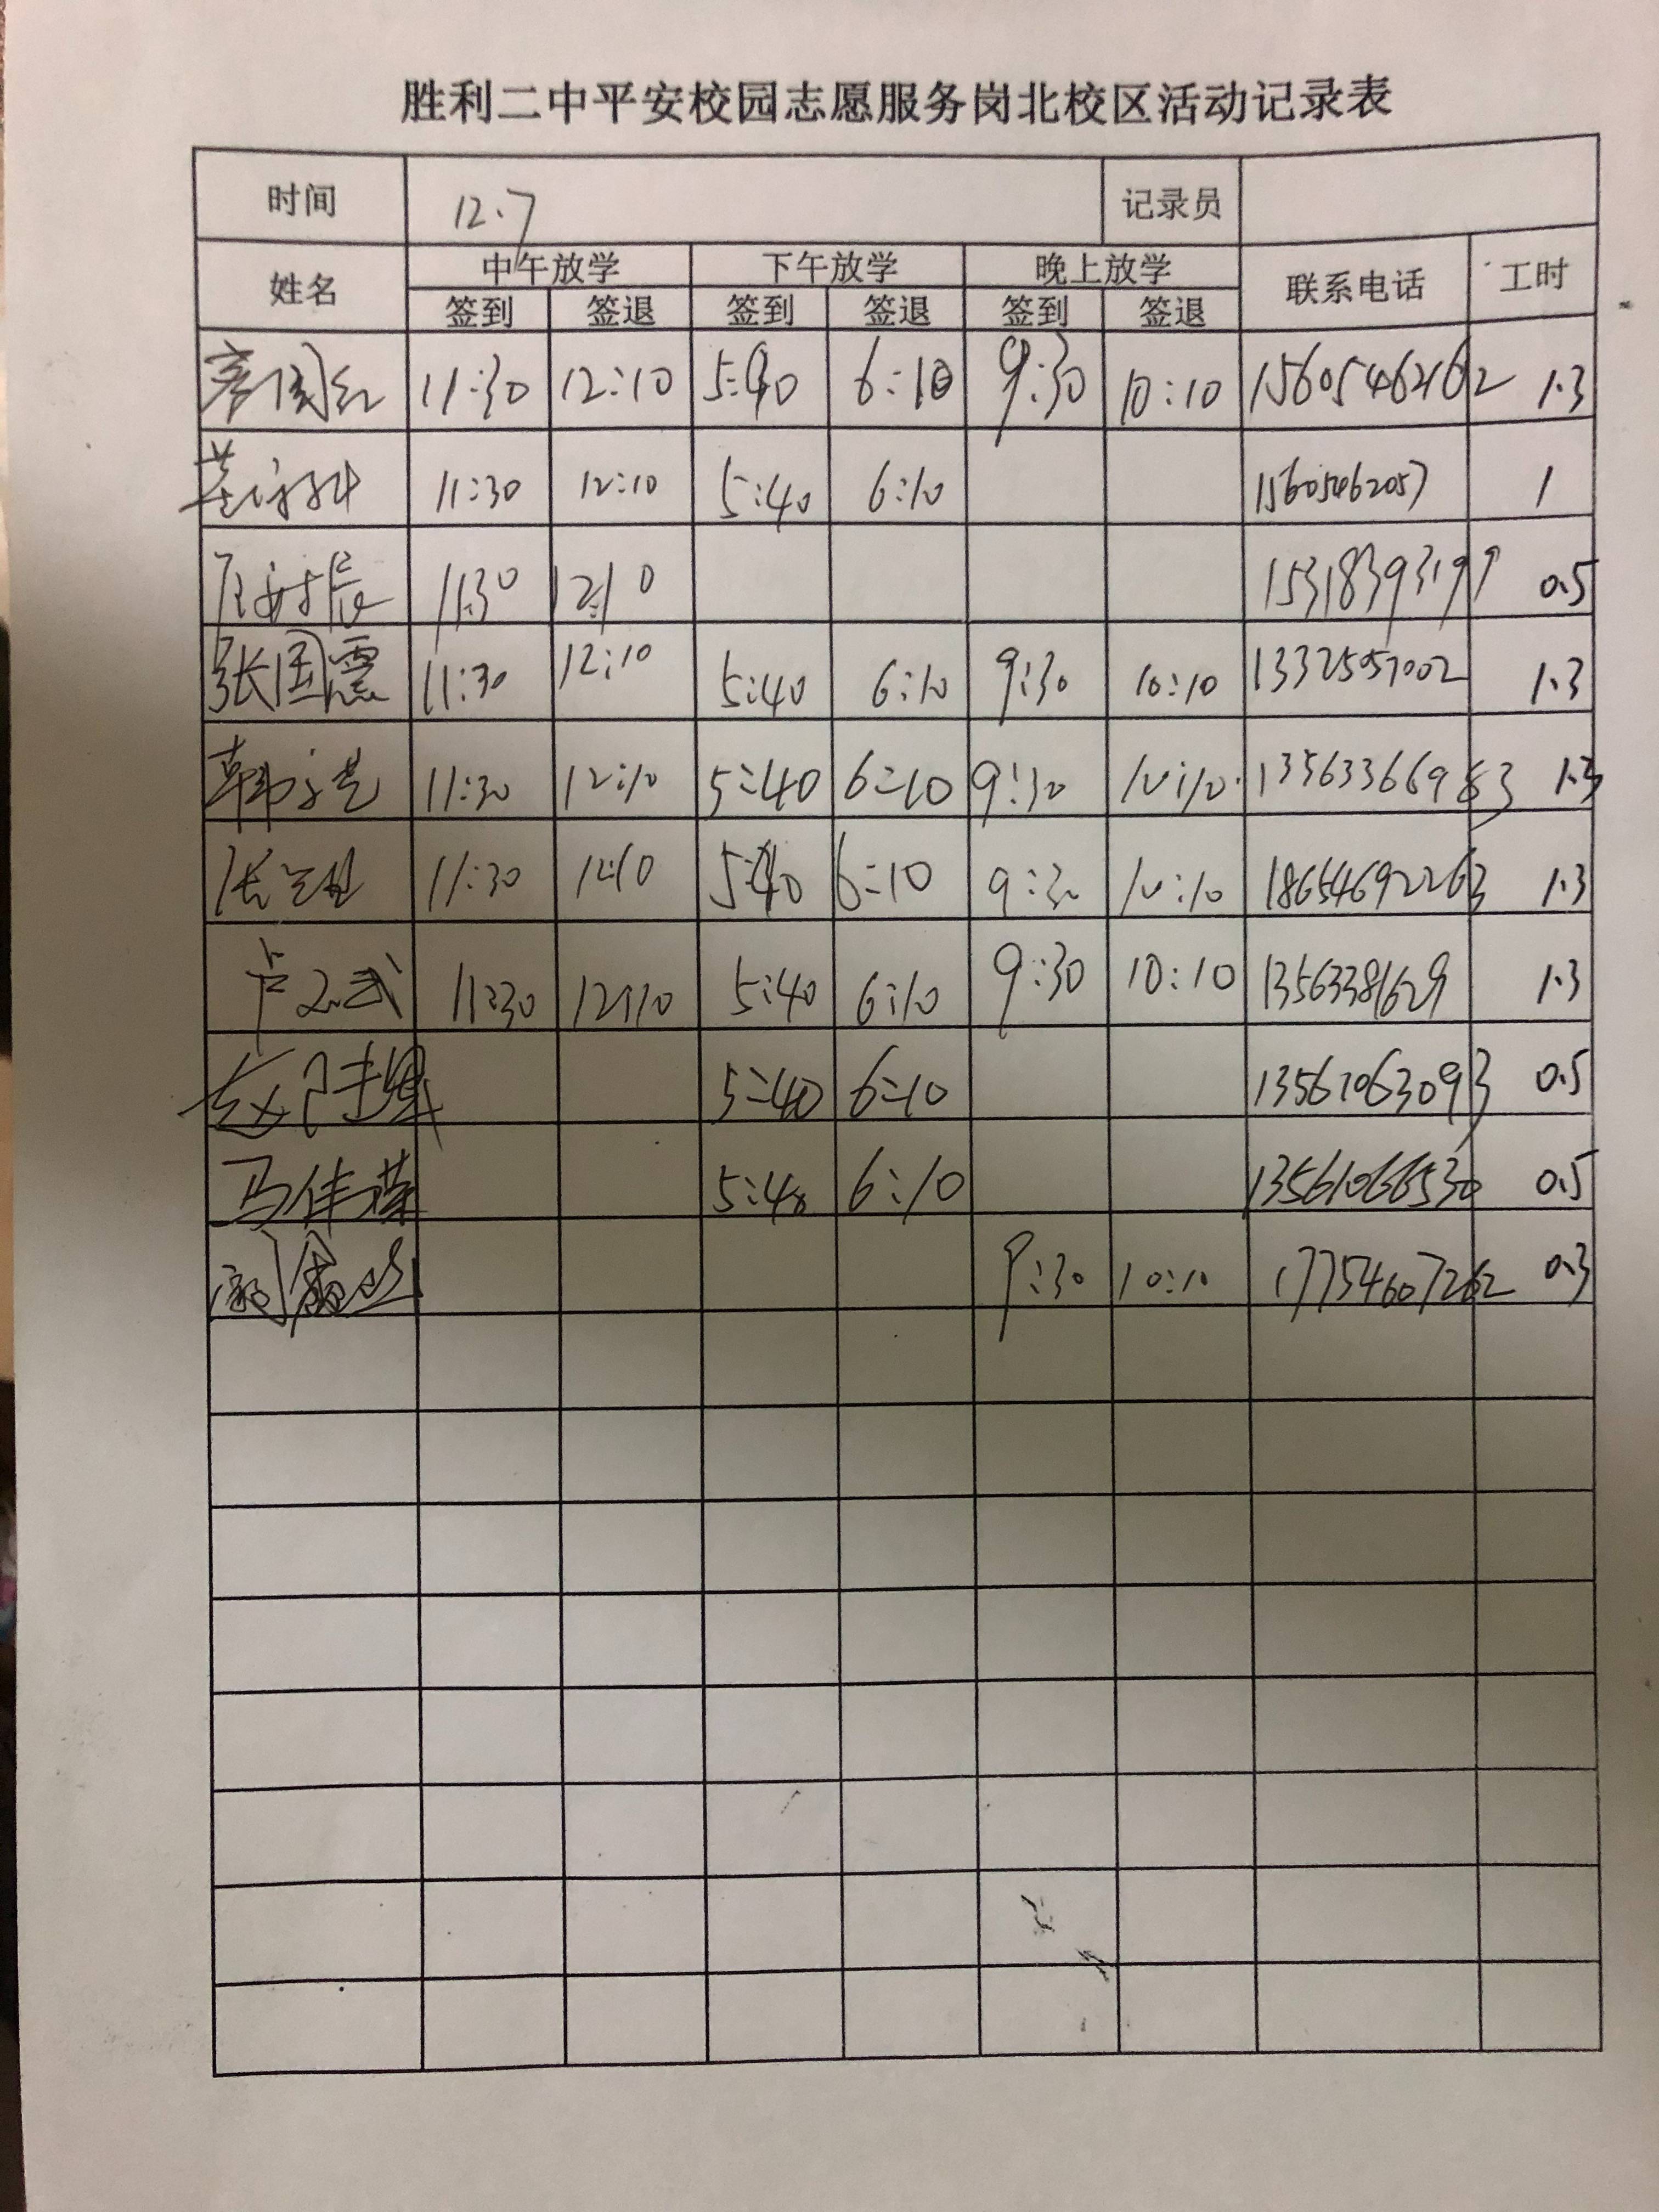 胜利二中平安校园志愿服务岗北校区活动记录表
时间 12.7 记录员
姓名 中午放学 下午放学 晚上放学 联系电话 工时
签到 签退 签到 签退 签到 签退
11:30 12:10 5:40 6:10 9:30 10:10 15605462162 1.3
11:30 12:10 5:40 6:10 15605462057 1
11:30 12:10 15318393199 0.5
张国震 11:30 12:10 5:40 6:10 9:30 10:10 13325057002 1.3
11:30 12:10 5:40 6:10 9:30 10:10 13563366983 1.3
11:30 12:10 5:40 6:10 9:30 10:10 18654692263 1.3
11:30 12:10 5:40 6:10 9:30 10:10 13563381629 1.3
5:40 6:10 13561063093 0.5
马伟 5:40 6:10 13561066530 0.5
9:30 10:10 17754607262 0.3